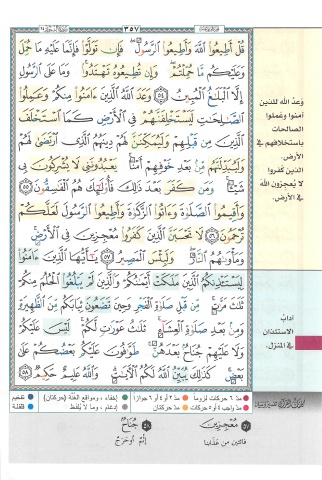 ٣٥٧
قُلْ أَطِيعُوا۟ ٱللَّهَ وَأَطِيعُوا۟ ٱلرَّسُولَ ۖ فَإِن تَوَلَّوْا۟ فَإِنَّمَا عَلَيْهِ مَا حُمِّلَ
وَعَلَيْكُم مَّا حُمِّلْتُمْ ۖ وَإِن تُطِيعُوهُ تَهْتَدُوا۟ ۚ وَمَا عَلَى ٱلرَّسُولِ
إِلَّا ٱلْبَلَٰغُ ٱلْمُبِينُ ٥٤ وَعَدَ ٱللَّهُ ٱلَّذِينَ ءَامَنُوا۟ مِنكُمْ وَعَمِلُوا۟
ٱلصَّٰلِحَٰتِ لَيَسْتَخْلِفَنَّهُمْ فِى ٱلْأَرْضِ كَمَا ٱسْتَخْلَفَ
ٱلَّذِينَ مِن قَبْلِهِمْ وَلَيُمَكِّنَنَّ لَهُمْ دِينَهُمُ ٱلَّذِى ٱرْتَضَىٰ لَهُمْ
وَلَيُبَدِّلَنَّهُم مِّنۢ بَعْدِ خَوْفِهِمْ أَمْنًا ۚ يَعْبُدُونَنِى لَا يُشْرِكُونَ بِى
شَيْـًٔا ۚ وَمَن كَفَرَ بَعْدَ ذَٰلِكَ فَأُو۟لَٰٓئِكَ هُمُ ٱلْفَٰسِقُونَ ٥٥
وَأَقِيمُوا۟ ٱلصَّلَوٰةَ وَءَاتُوا۟ ٱلزَّكَوٰةَ وَأَطِيعُوا۟ ٱلرَّسُولَ لَعَلَّكُمْ
تُرْحَمُونَ ٥٦ لَا تَحْسَبَنَّ ٱلَّذِينَ كَفَرُوا۟ مُعْجِزِينَ فِى ٱلْأَرْضِ ۚ
وَمَأْوَىٰهُمُ ٱلنَّارُ ۖ وَلَبِئْسَ ٱلْمَصِيرُ ٥٧ يَٰٓأَيُّهَا ٱلَّذِينَ ءَامَنُوا۟
لِيَسْتَـْٔذِنكُمُ ٱلَّذِينَ مَلَكَتْ أَيْمَٰنُكُمْ وَٱلَّذِينَ لَمْ يَبْلُغُوا۟ ٱلْحُلُمَ مِنكُمْ
ثَلَٰثَ مَرَّٰتٍ ۚ مِّن قَبْلِ صَلَوٰةِ ٱلْفَجْرِ وَحِينَ تَضَعُونَ ثِيَابَكُم مِّنَ ٱلظَّهِيرَةِ
وَمِنۢ بَعْدِ صَلَوٰةِ ٱلْعِشَآءِ ۚ ثَلَٰثُ عَوْرَٰتٍ لَّكُمْ ۚ لَيْسَ عَلَيْكُمْ
وَلَا عَلَيْهِمْ جُنَاحٌۢ بَعْدَهُنَّ ۚ طَوَّٰفُونَ عَلَيْكُم بَعْضُكُمْ عَلَىٰ
بَعْضٍ ۚ كَذَٰلِكَ يُبَيِّنُ ٱللَّهُ لَكُمُ ٱلْءَايَٰتِ ۗ وَٱللَّهُ عَلِيمٌ حَكِيمٌ ٥٨
وعدُ الله للذين
آمنوا وعملوا
الصالحات
باستخلافهم في
الأرض.
الذين كفروا
لا يُعجزون الله
في الأرض.
آدابُ
الاستئذان
في المنزل.
مدّ ٦ حركات لزوماً
مدّ ٢ أو ٤ أو ٦ جوازاً
إخفاء، ومواقع الغُنَّة (حركتان)
تفخيم
مدّ واجب ٤ أو ٥ حركات
مدّ حركتان
إدغام، وما لا يُلفَظ
قلقلة
٥٧ مُعْجِزِينَ
فائتين من عذابنا
٥٨ جُنَاحٌ
إثم أو حَرَج